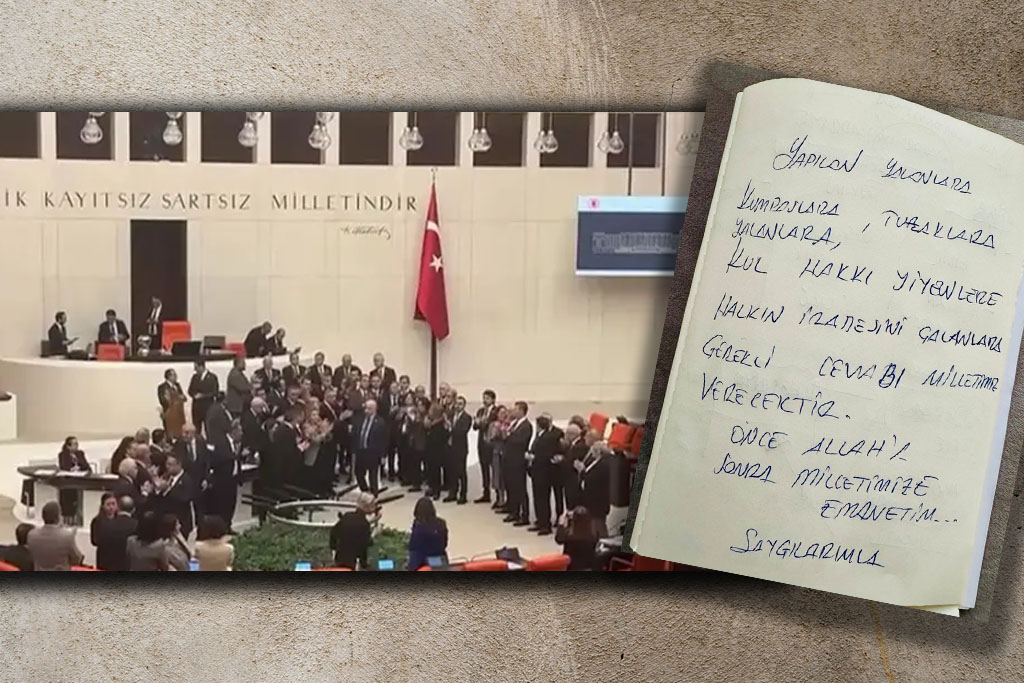 İK KAYITSIZ ŞARTSIZ MİLLETİNDİR
K. Atatürk
YAPILAN YALANLARA
KUMPASLARA, TUZAKLARA
YALANLARA,
KUL HAKKI YİYENLERE
HALKIN İRADESİNİ ÇALANLARA
GEREKLİ CEVABI MİLLETİMİZ
VERECEKTİR.
ÖNCE ALLAH'A
SONRA MİLLETİMİZE
EMANETİM...
SAYGILARIMLA